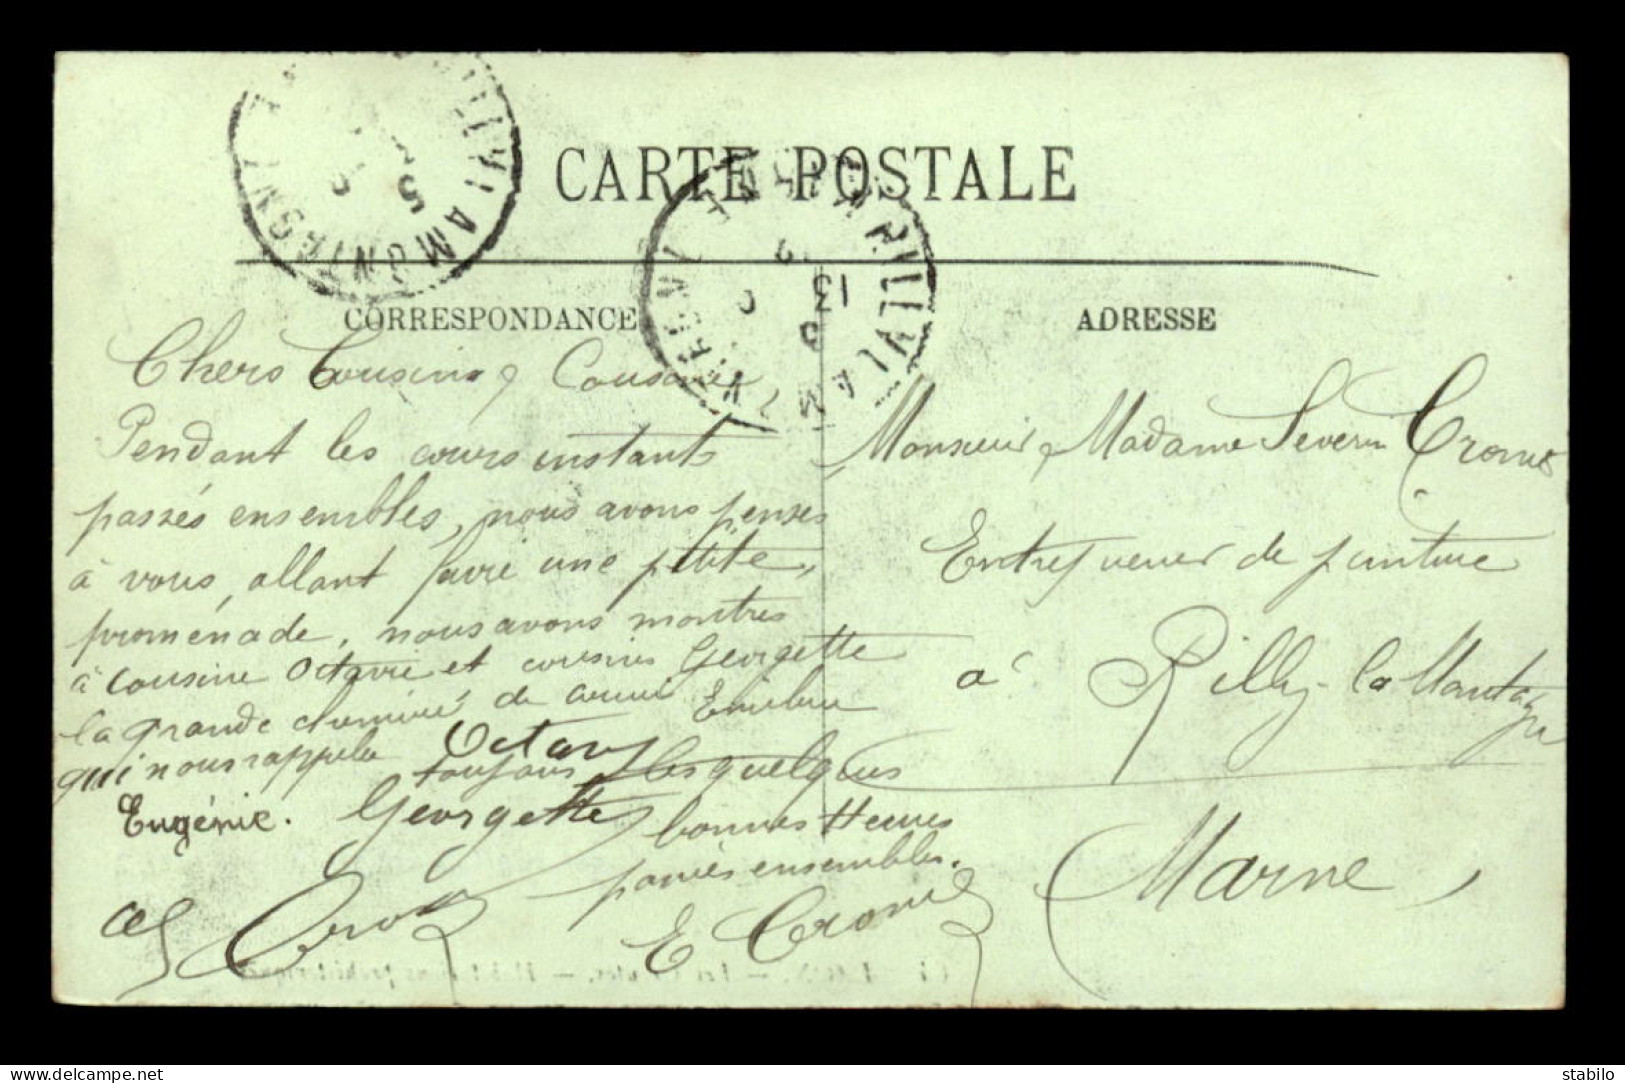 CARTE POSTALE
CORRESPONDANCE
ADRESSE
Chers Cousins & Cousine
Pendant les cours instants
passés ensembles, nous avons penses
à vous, allant faire une petite
promenade, nous avons montres
à cousine Octavie et cousins Georgette
la grande cheminé de
qui nous rappele toujours les quelques
bonnes Heures
ensembles.
Octavie
Eugénie.
Georgette
E Cromé
Monsieur & Madame Séverin
Entrepreneur de peinture
à Rilly-la Montagne
Marne
RILLY LA MONTAGNE
5
13
stabilo
www.delcampe.net